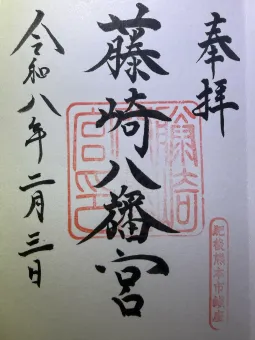 奉拝
藤崎八旛宮
令和八年二月三日
肥後熊本市鎮座